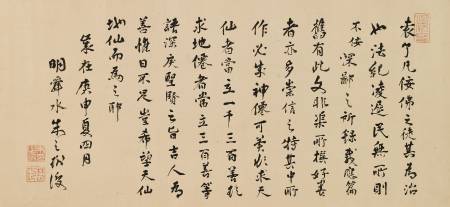 袁了凡佞佛之徒其為治
也法紀凌遲民無所則
不佞深鄙之所錄應篇
舊有此文非渠所撰好善
者亦多崇信之特其中所
作必求神僊可求天
仙者當立一千三百善欲
求地僊者當立三百善等
語深戾聖賢之旨吉人為
善惟日不足豈希望天仙
地仙而為之耶
歲在庚申夏四月
明舜水朱之瑜